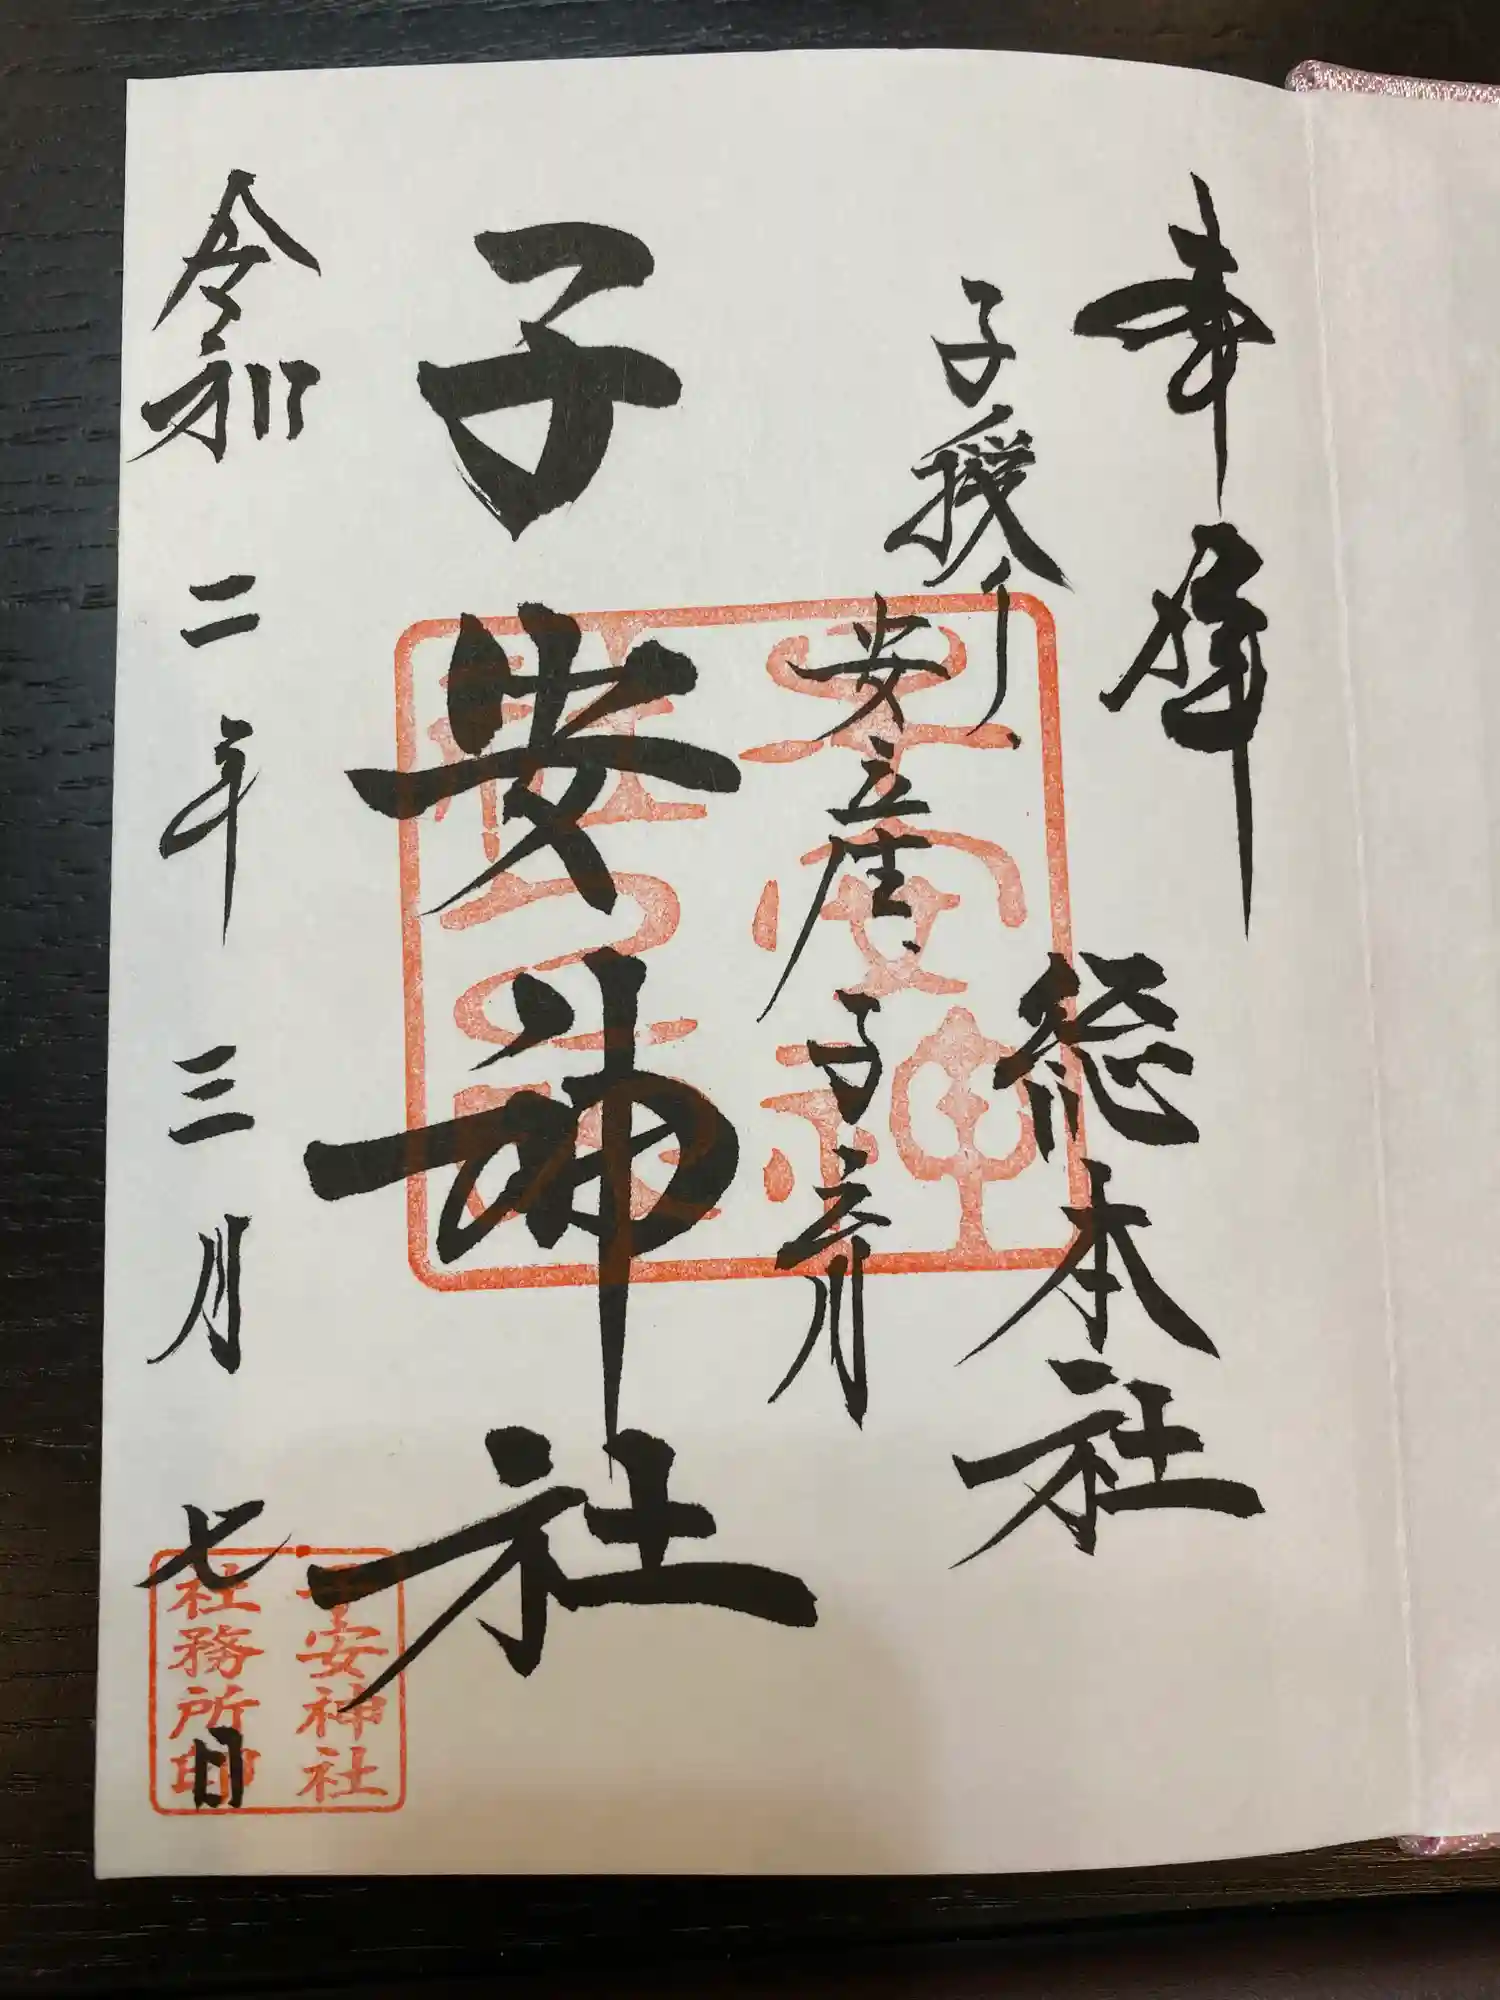 奉拝
総本社
子授け、安産、子育
子安神社
令和二年三月七日
子安神社
社務所印